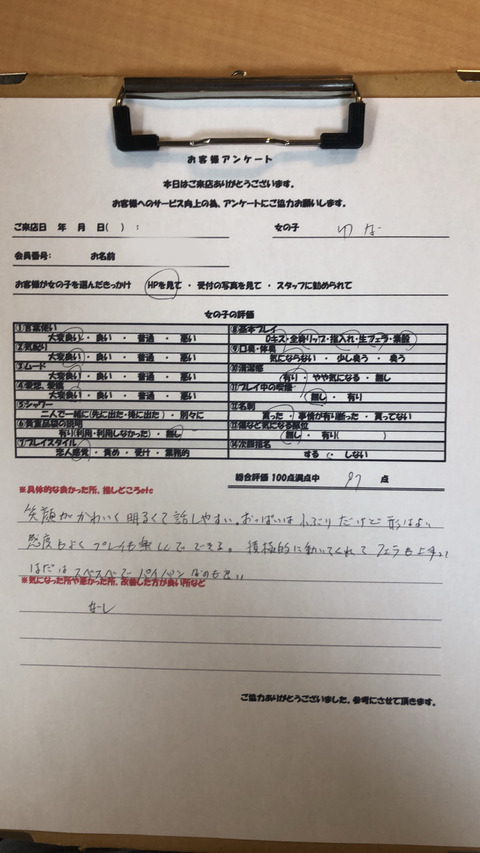 お客様アンケート
本日はご来店ありがとうございます。
お客様へのサービス向上の為、アンケートにご協力お願いします。
ご来店日 年 月 日( ) : 女の子 ゆな
会員番号: お名前
お客様が女の子を選んだきっかけ HPを見て ・ 受付の写真を見て ・ スタッフに勧められて
女の子の評価
①言葉使い ⑧基本プレイ
大変良い ・ 良い ・ 普通 ・ 悪い Dキス・全身リップ・指入れ・生フェラ・素股
②気配り ⑨口臭・体臭
大変良い ・ 良い ・ 普通 ・ 悪い 気にならない ・ 少し臭う ・ 臭う
③ムード ⑩清潔感
大変良い ・ 良い ・ 普通 ・ 悪い 有り ・ やや気になる ・ 無し
④愛想、愛嬌 ⑪プレイ中の
大変良い ・ 良い ・ 普通 ・ 悪い 無し ・ 有り
⑤シャワー ⑫名刺
二人で一緒に(先に出た・後に出た) ・ 別々に 貰った ・ 事情が有り断った ・ 貰ってない
⑥貴重品袋の説明 ⑬傷など気になる部位
有り(利用・利用しなかった) ・ 無し 無し ・ 有り( )
⑦プレイスタイル ⑭次回指名
恋人感覚 ・ 責め ・ 受け ・ 業務的 する ・ しない
総合評価 100点満点中 97 点
※具体的な良かった所、推しどころetc
笑顔がかわいく明るくて話しやすい。おっぱいは小ぶりだけど形はよい
感度もよくプレイも楽しんでできる。積極的に動いてくれてフェラも上手い
はだはスベスベでパイパンなのも良い
※気になった所や悪かった所、改善した方が良い所など
なし
ご協力ありがとうございました。参考にさせて頂きます。